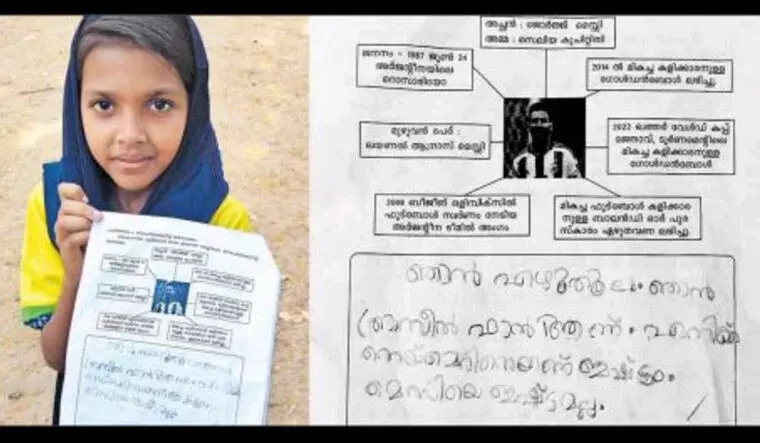 അച്ഛൻ : ജോർജ് മെസ്സി
അമ്മ : സെലിയ കുചിറ്റിനി
ജനനം - 1987 ജൂൺ 24
അർജന്റീനയിലെ
റൊസാരിയോ
2014 ൽ മികച്ച കളിക്കാരനുള്ള
ഗോൾഡൻബോൾ ലഭിച്ചു.
മുഴുവൻ പേര് :
ലയണൽ ആന്ദ്രസ് മെസ്സി
2022 ഖത്തർ വേൾഡ് കപ്പ്
ജേതാവ്, ടൂർണമെന്റിലെ
മികച്ച കളിക്കാരനുള്ള
ഗോൾഡൻബോൾ
2008 ബീജിങ് ഒളിമ്പിക്സിൽ
ഫുട്ബോൾ സ്വർണം നേടിയ
അർജന്റീന ടീമിൽ അംഗം
മികച്ച ഫുട്ബോൾ കളിക്കാര
നുള്ള ബാലൻഡി ഓർ പുര
സ്കാരം ഏഴുതവണ ലഭിച്ചു.
ഞാൻ എഴുതൂല ഞാൻ
ബ്രസീൽ ഫാൻ ആണ് എനിക്ക്
നെയ്മറിനെയാണ് ഇഷ്ടം
മെസിയെ ഇഷ്ടമല്ല